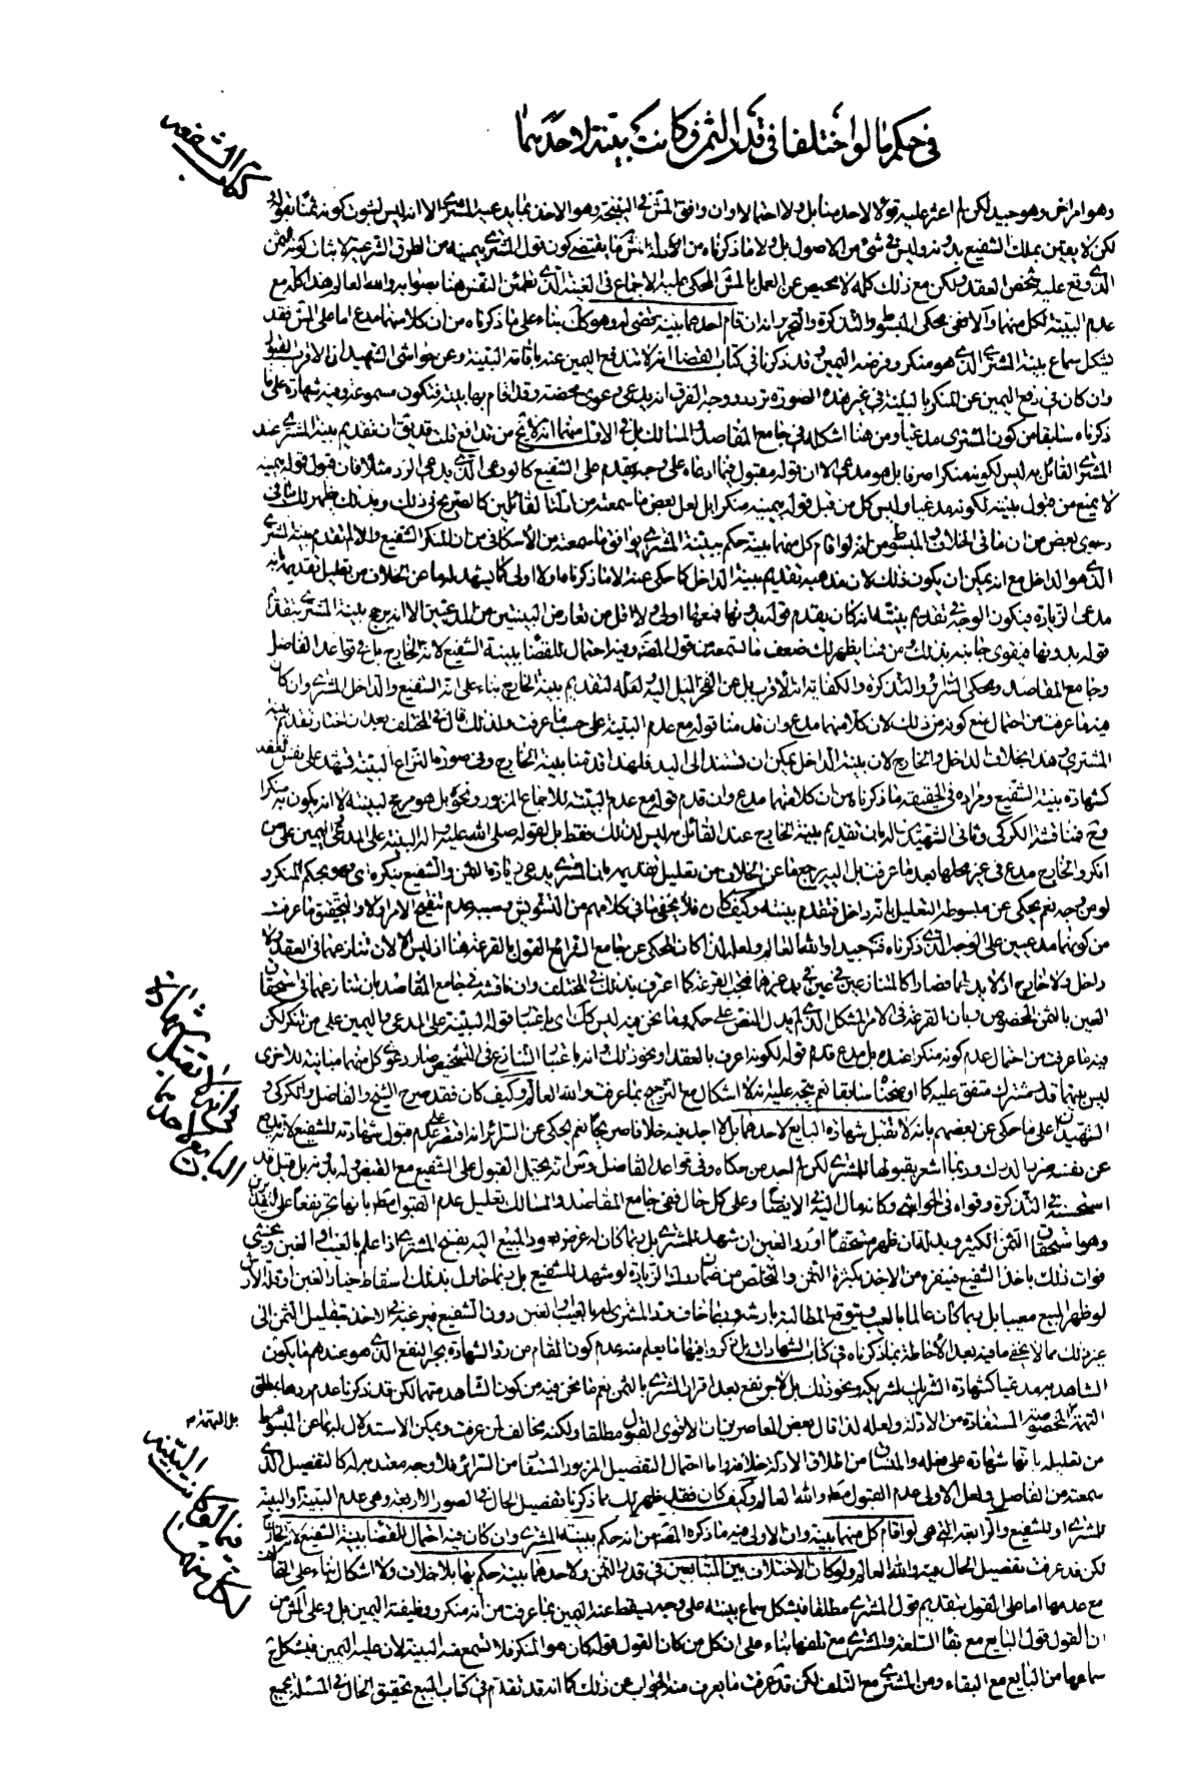 في حكم ما لو اختلفا في قدر الثمن وكانت بينة لاحدهما
كتاب الشفعة
وهو امر اخر وهو جيد لكن لم اعثر عليه قولا لاحد منا بل ولا احتمالا وان وافق المش في النتيجة وهو الاخذ بما يدعيه المشتري الا انه ليس لثبوت كونه ثمنا بقوله
لكن لا يتعين بملك الشفيع بدونه وليس في شئ من الاصول بل ولا ما ذكرناه من الادلة المش ما يقتضي كون قول المشتري بيمينه من الطرق الشرعية لاثبات كونه الثمن
الذي وقع عليه شخص العقد ولكن مع ذلك كله لا محيص عن العمل بالمش المحكي عليه الاجماع في الغنية الذي تطمئن النفس هنا بصوابه والله العالم هذا كله مع
عدم البينة لكل منهما والا ففي محكي المبسوط والتذكرة والتحرير انه ان قام احدهما بينة قضي له وهو كك بناء على ما ذكرناه من ان كلا منهما مدع اما على المش فقد
يشكل سماع بينة المشتري الذي هو منكر وفرضه اليمين وقد ذكرنا في كتاب القضا انه لا تندفع اليمين عنه باقامة البينة وعن حواشي الشهيد ان الاقرب القبول
وان كان في دفع اليمين عن المنكر بالبينة في غير هذه الصورة تردد ووجه الفرق انه يدعي دعوى محضة وقد اقام بها بينة فتكون مسموعة وفيه شهادة على ما
ذكرناه سابقا من كون المشتري مدعيا ومن هنا اشكله في جامع المقاصد والمسالك بل في الاول منهما انه لا يخ من تدافع ذلك قد يق ان تقديم بينة المشتري عند
المشتري القائل به ليس لكونه منكرا صرفا بل هو مدعى الا ان قوله مقبول فيما ادعاه على وجه يقدم على الشفيع كالودعي الذي يدعي الرد مثلا فان قبول قوله بيمينه
لا يمنع من قبول بينته لكونه مدعيا وليس كل من قبل قوله بيمينه منكرا بل لعل بعض ما سمعته من ادلتنا لقائلين كالصريح في ذلك وبذلك يظهر لك ما في
دعوى بعض من ان ما في الخلاف والمبسوط من انه لو اقام كل منهما بينة حكم ببينة المشتري يوافق ما سمعته من الاسكافي من ان المنكر الشفيع والا لم تقدم بينة المشتري
الذي هو الداخل مع انه يمكن ان يكون ذلك لان مذهبه تقديم بينة الداخل كما حكي عنه لا ما ذكرناه او لا اولى كما يشهد له ما عن الخلاف من تعليل تقديمه بانه
مدعى الزيادة فيكون الوجه في تقديم بينته انه كان يقدم قوله بدونها فمعها اولى ولا اقل من تعارض البينتين من المدعيين الا انه يرجح بينة المشتري بتقديم
قوله بدونها فيقوى جانبه بذلك ومن هنا يظهر لك ضعف ما تسمعه من قول المص وفيه احتمال للقضا ببينة الشفيع لانه الخارج بل في قواعد الفاضل
وجامع المقاصد ومحكي الشرائع والتذكرة والكفاية انه الاقرب بل عن الفخر الميل اليه ولعله لتقديم بينة الخارج بناء على انه الشفيع والداخل المشتري وان كان
فيه ما عرفت من احتمال منع كونه من ذلك لان كلا منهما مدع وان قدمنا قوله مع عدم البينة على حسب ما عرفت ولذلك قال في المختلف بعد ان اختار تقديم بينة
المشتري هذا بخلاف الداخل والخارج لان بينة الداخل يمكن ان تستند الى اليد فلهذا قدمنا بينة الخارج وفي صورة النزاع البينة تشهد على نفس العقد
كشهادة بينة الشفيع ومراده في الحقيقة ما ذكرناه من ان كلا منهما مدع وان قدم قوله مع عدم البينة للاجماع المزبور ونحوه بل هو مرجح لبينته لا انه يكون به منكرا
وح فمناقشة الكركي وثاني الشهيدين له بان تقديم بينة الخارج عند القائل به ليس لذلك فقط بل لقوله صلى الله عليه واله البينة على المدعي واليمين على من
انكر والخارج مدع في غير محلها بعد ما عرفت بل اليه يرجع ما عن الخلاف من تعليل تقديمه بان المشتري يدعي زيادة الثمن والشفيع ينكره اي هو بحكم المنكر و
لو من وجه نعم يحكى عن مبسوطه التعليل بانه داخل فتقدم بينته وكيف كان فلا يخفى ما في كلامهم من التشويش وسببه عدم تنقيح الامر اولا والتحقيق ما عرفت
من كونهما مدعيين على الوجه الذي ذكرناه فتجيدا والله العالم ولعله لذا كان المحكي عن جامع الشرائع القول بالقرعة هنا اذ ليس الا لان تنازعهما في العقد ولا
داخل ولا خارج اذ لا يد لهما فصارا كالمتنازعين في عين في يد غيرهما فتجب القرعة كما اعترف بذلك في المختلف وان ناقشه في جامع المقاصد بان تنازعهما في استحقاق
العين بالثمن المخصوص وبان القرعة في الامر المشكل الذي لم يدل النص على حكمه وما نحن فيه ليس كك اي باعتبار قوله البينة على المدعي واليمين على من انكر لكن
فيه ما عرفت من احتمال عدم كونه منكرا عنده بل مدع قدم قوله لكونه اعرف بالعقد او نحو ذلك انه باعتبار التنازع في التشخيص صار دعوى كل منهما مباينة للاخرى
ليس بينهما قدر مشترك متفق عليه كما اوضحناه سابقا نعم يتجه عليه انه لا اشكال مع الترجيح بما عرفت والله العالم وكيف كان فقد صرح الشيخ والفاضل والكركي و
الشهيدان على ما حكي عن بعضهم بانه لا تقبل شهادة البايع لاحدهما بل لا اجد فيه خلافا صريحا نعم يحكى عن السرائر انه اقتصر على عدم قبول شهادته للشفيع لانه يدفع
عن نفسه ضربا لدرك وربما اشعر بقبولها للمشتري لكن لم اجد من حكاه وفي قواعد الفاضل وس انه يحتمل القبول على الشفيع مع القبض وله بدونه بل قيل قد
استحسنه في التذكرة وقواه في الحواشي وكانه مال اليه في الايضاح وعلى كل حال ففي جامع المقاصد والمسالك تعليل عدم القبول مطلقا بانها تجر نفعا على التقديرين
وهو استحقاق الثمن الكثير وبدله ان ظهر مستحقا او رد العين ان شهد للمشتري بل ربما كان له غرض بعود المبيع اليه بفسخ المشتري اذا علم بالعيب او الغبن ويخشى
فوات ذلك باخذ الشفيع فينفره من الاخذ بكثرة الثمن والتخلص من ضمان تلك الزيادة لو شهد للشفيع بل ربما حاول بذلك اسقاط خيار الغبن او قلة الارش
لو ظهر المبيع معيبا بل ربما كان عالما بالعيب ويتوقع المطالبة بارشه وربما خاف رد المشتري له بالعيب او الغبن دون الشفيع فيرغبه في الاخذ بتقليل الثمن الى
غير ذلك مما لا يخفى ما فيه بعد الاحاطة بما ذكرناه في كتاب الشهادات بل ذكروا فيها ما يعلم منه عدم كون المقام من رد الشهادة بجر النفع الذي هو عندهم ما يكون
الشاهد به مدعيا كشهادة الشريك لشريكه ونحو ذلك بل لا جر نفع بعد اقرار المشتري بالثمن نعم ما نحن فيه من كون الشاهد متهما لكن قد ذكرنا عدم ردها بمطلق
التهمة بل التهمة المخصوصة المستفادة من الادلة ولعله لذا قال بعض المعاصرين بان الاقوى القبول مطلقا ولكنه مخالف لمن عرفت ويمكن الاستدلال له بما عن المبسوط
من تعليله بانها شهادة على فعله والمنساق من اطلاق الادلة خلافه واما احتمال التفصيل المزبور المنساق من السرائر فلا وجه معتد به له كالتفصيل الذي
سمعته من الفاضل ولعل الاولى عدم القبول مطلقا والله العالم وكيف كان فقد ظهر لك مما ذكرنا تفصيل الحال في الصور الاربعة وهي عدم البينة او البينة
للمشتري او للشفيع والرابعة التي هي لو اقام كل منهما بينة وان الاولى فيه ما ذكره المص من انه حكم ببينة المشتري وان كان فيه احتمال القضا ببينة الشفيع لانه الخارج
لكن قد عرفت تفصيل الحال فيه والله العالم ولو كان الاختلاف بين المتبايعين في قدر الثمن ولاحدهما بينة حكم بها بلا خلاف ولا اشكال بناء على التحالف
مع عدمها اما على القول بتقديم قول المشتري مطلقا فيشكل سماع بينته على وجه يسقط عنه اليمين بما عرفت من انه منكر ووظيفته اليمين بل وعلى المش من
ان القول قول البايع مع بقا السلعة والمشتري مع تلفها بناء على ان كل من كان القول قوله كان هو المنكر فلا تسمع منه البينة لان عليه اليمين فيشكل ح
سماعها من البايع مع البقاء ومن المشتري مع التلف لكن قد عرفت ما يعرف منه الجواب عن ذلك كما انه قد تقدم في كتاب البيع تحقيق الحال في المسئلة بجميع
في انه لا تقبل شهادة
البايع لاحدهما
بل التهمة
فيما لو كانت البينة
لكل منهما